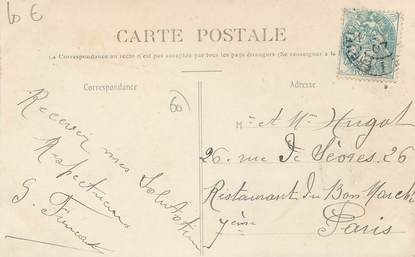 60 €
CARTE POSTALE
La Correspondance au recto n'est pas acceptée par tous les pays étrangers (Se renseigner à la
Correspondance
Adresse
60
Recevez mes Salutations
Respectueuses
G.
M. et Me Hugot
26 rue de Sèvres. 26
Restaurant du Bon Marché
7ème
Paris